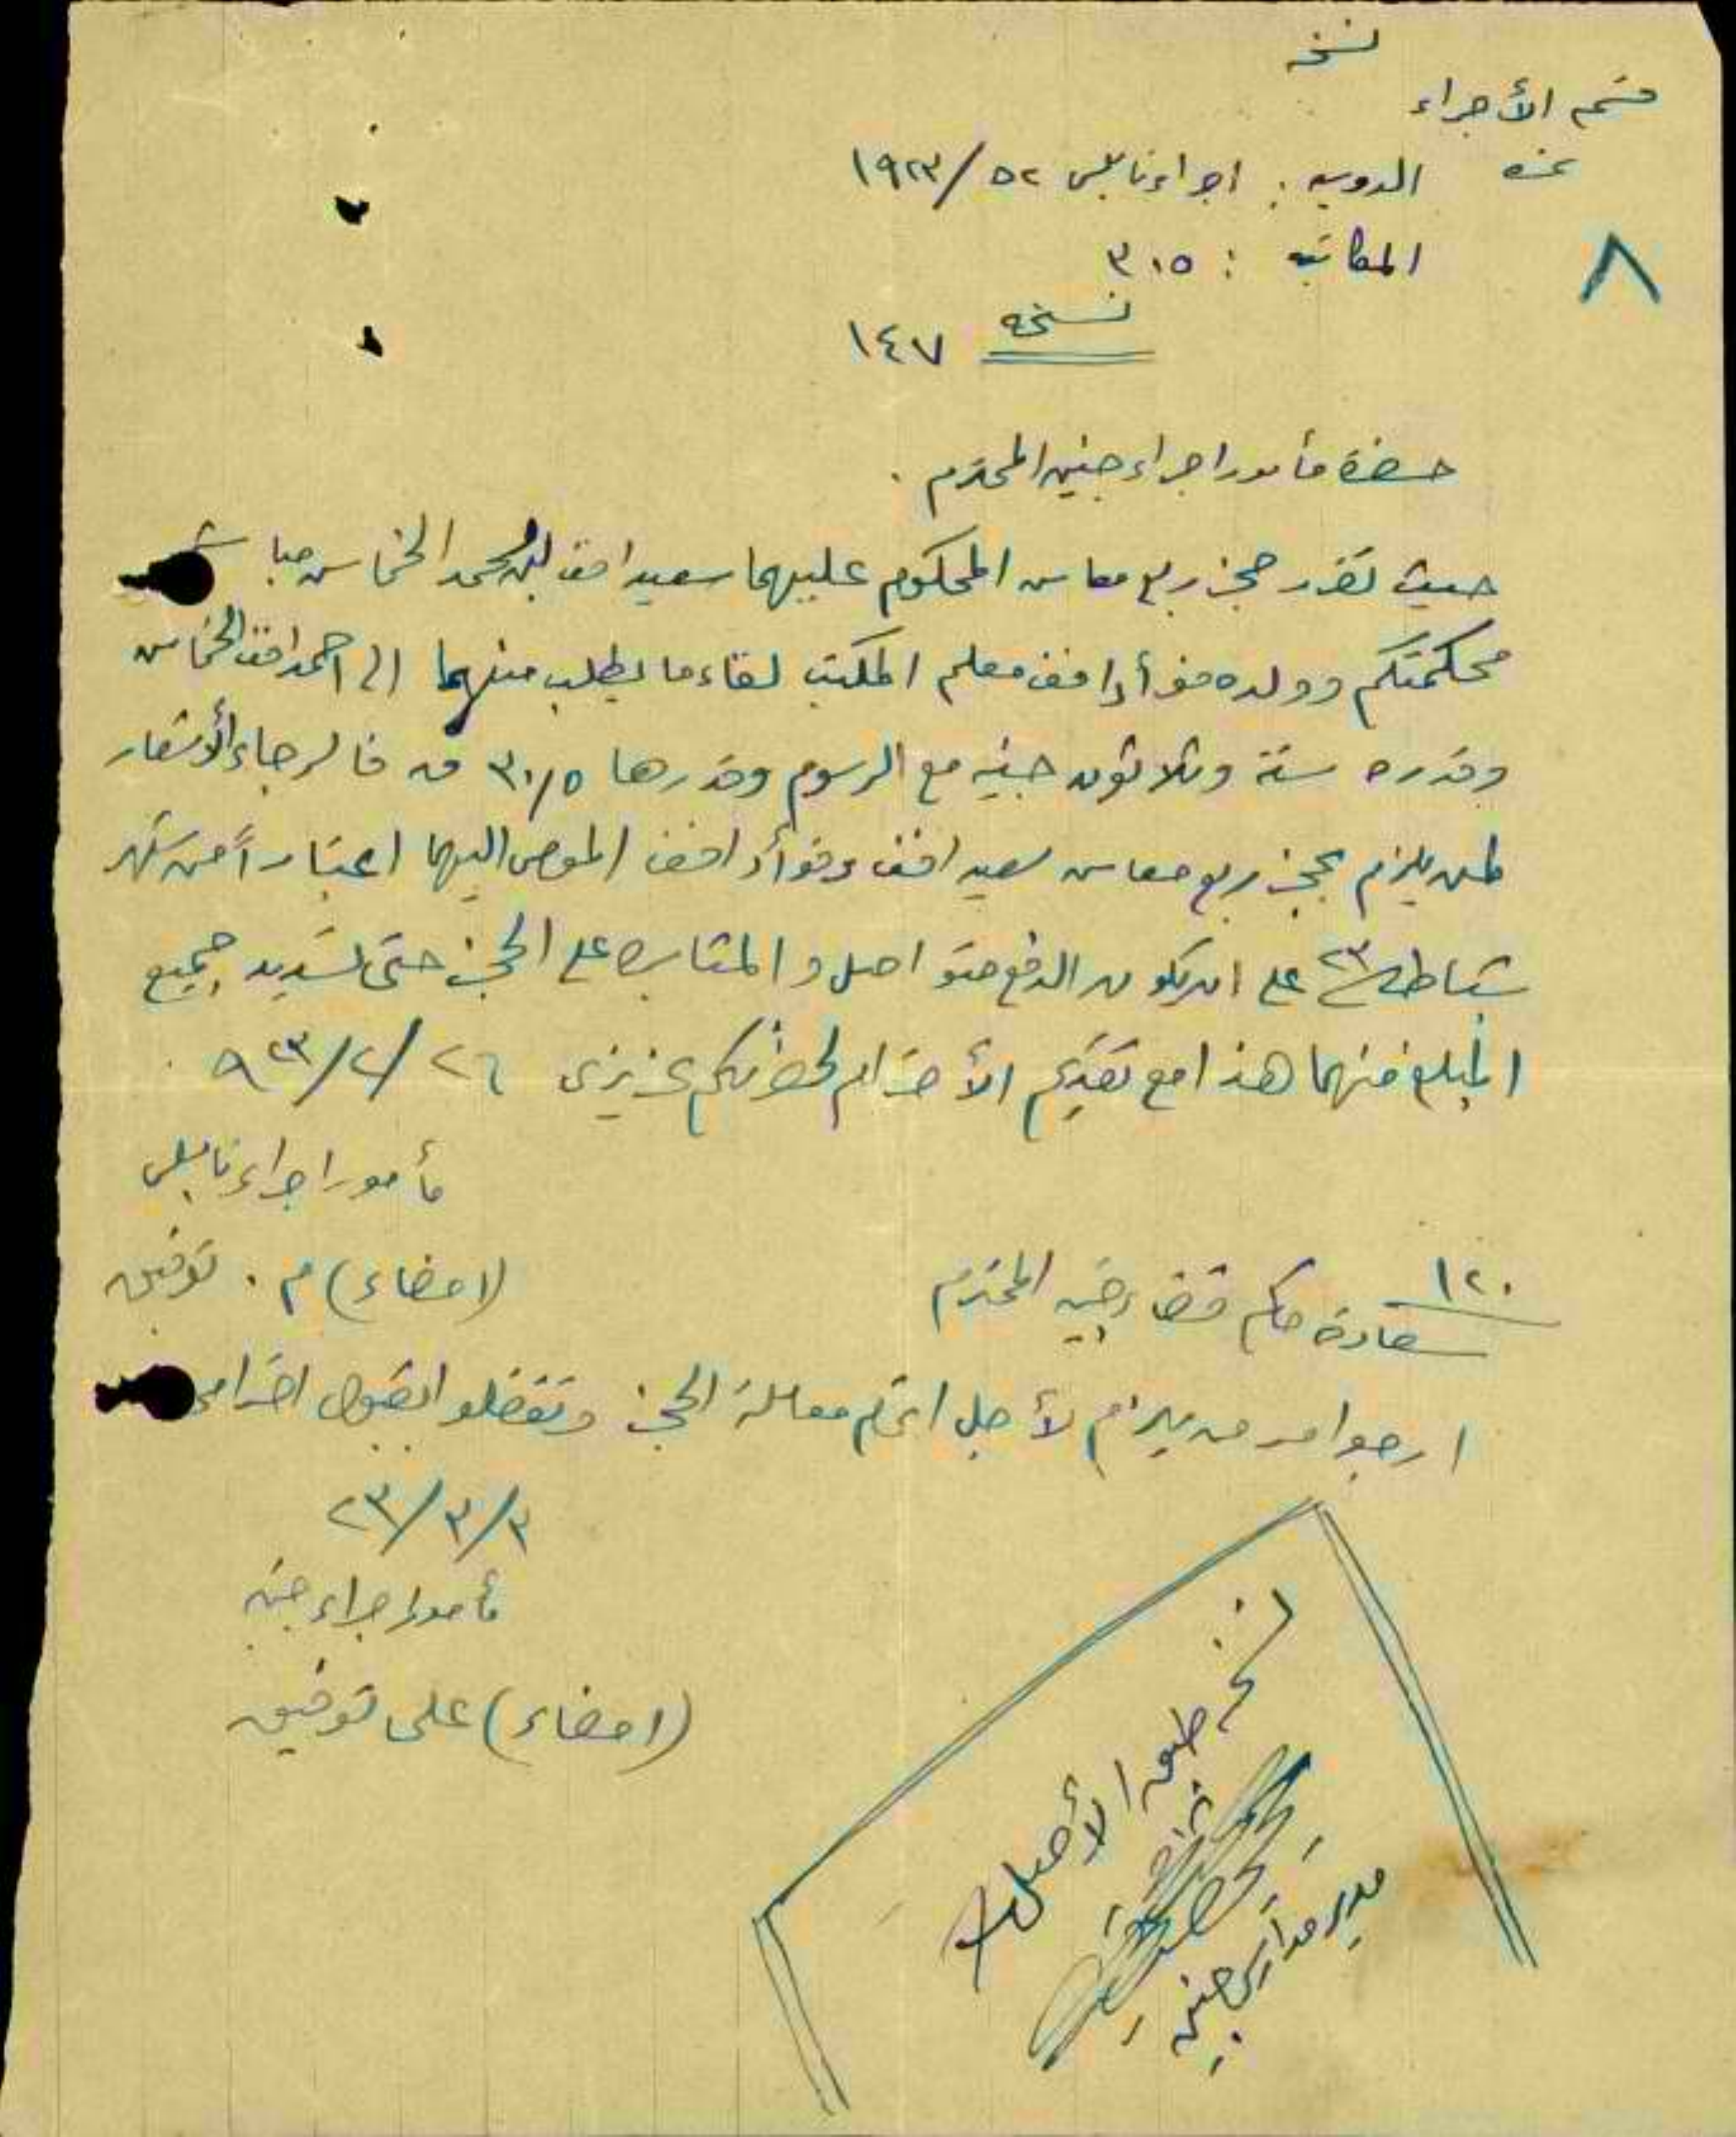 نسخه
قسم الأجراء
نمره الدوسيه : اجراء نابلس ٥٢/١٩٢٣
٨ المكاتبه : ٣١٥
نسخه ١٤٧
حضرة مأمور اجراء جنين المحترم .
حيث تقرر حجز ربع معاش المحكوم عليهما سعيد افندي محمد الخماش
محكمتكم وولده فؤاد افندي معلم المكتب لقاء ما يطلب منهما الى احمد افندي الخماش
وقدره ستة وثلاثون جنيه مع الرسوم وقدرها ٣٠/٥ فالرجاء الأشعار
لمن يلزم بحجز ربع معاش سعيد افندي وفؤاد افندي المومى اليهما اعتباراً من شهر
شباط ٢٣ على ان يكون الدفع متواصل والمثابره على الحجز حتى تسديد جميع
المبلغ منهما هذا مع تقديم الأحترام لحضرتكم عزيزي ٢٦/٢/٩٢٣
مأمور اجراء نابلس
(امضاء) م. توفيق
١٢٠
سعادة حاكم قضاء جنين المحترم
ارجو امر من يلزم لأجل اتمام معاملة الحجز وتفضلوا بقبول احترامي
٣/٣/٢٣
مأمور اجراء جنين
(امضاء) على توفيق
نسخه طبق الأصل
مدير مدارس جنين